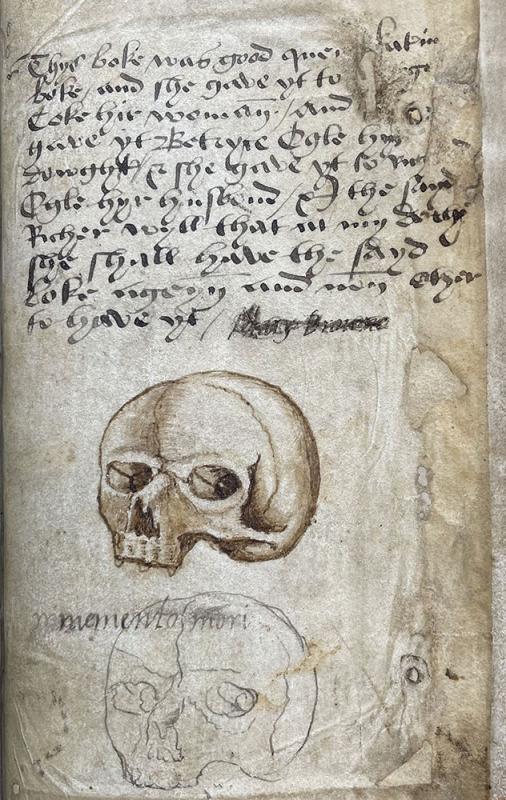 Thys boke was good quene katrin
boke, and she gave yt to
Coke hir woman / And
gave yt Betryce Ogle hyr
dowght / & she gave yt to
Ogle hyr husbend / & I the sayd
Richer wyll that at my dethe
she shall have the sayd
boke ageyn and non other
to have yt /
memento mori